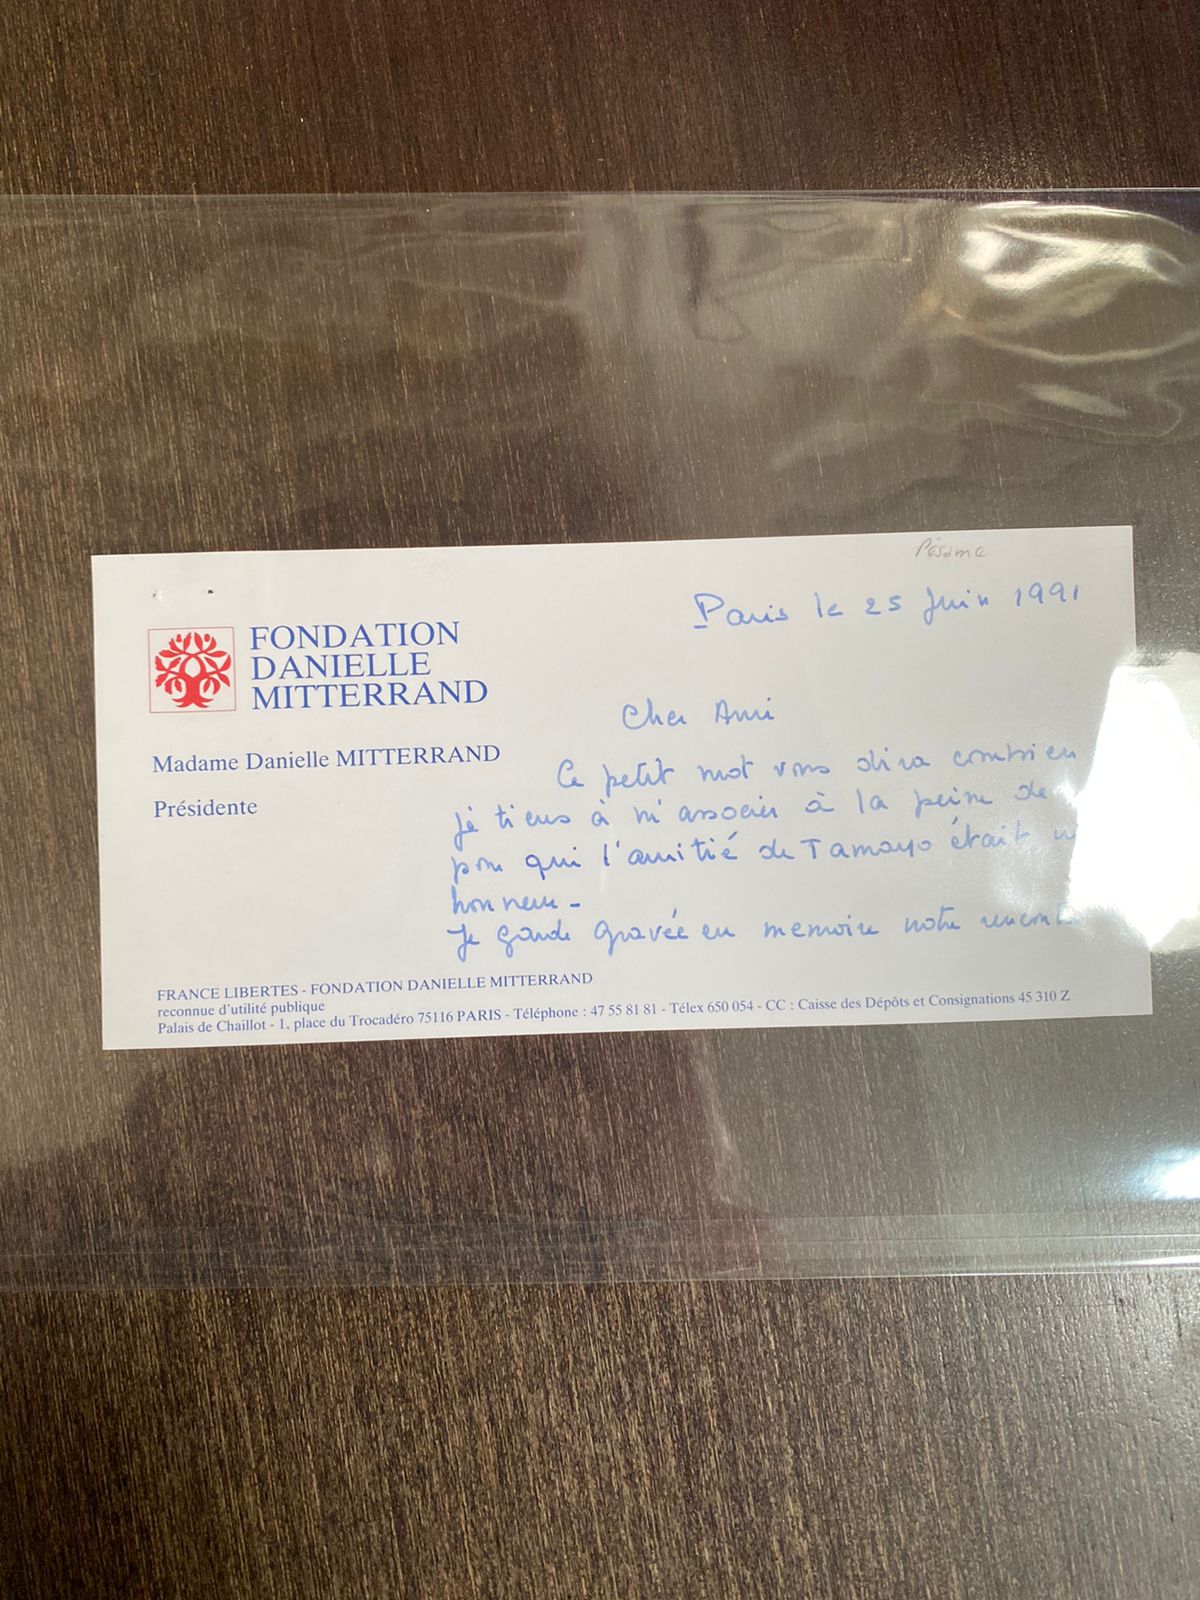 Pésame
Paris le 25 Juin 1991
FONDATION
DANIELLE
MITTERRAND
Madame Danielle MITTERRAND
Présidente
Cher Ami
Ce petit mot vous dira combien
je tiens à m'associer à la peine de
pour qui l'amitié de Tamayo était
honneur -
Je garde gravée en memoire notre
FRANCE LIBERTES - FONDATION DANIELLE MITTERRAND
reconnue d'utilité publique
Palais de Chaillot - 1, place du Trocadéro 75116 PARIS - Téléphone : 47 55 81 81 - Télex 650 054 - CC : Caisse des Dépôts et Consignations 45 310 Z